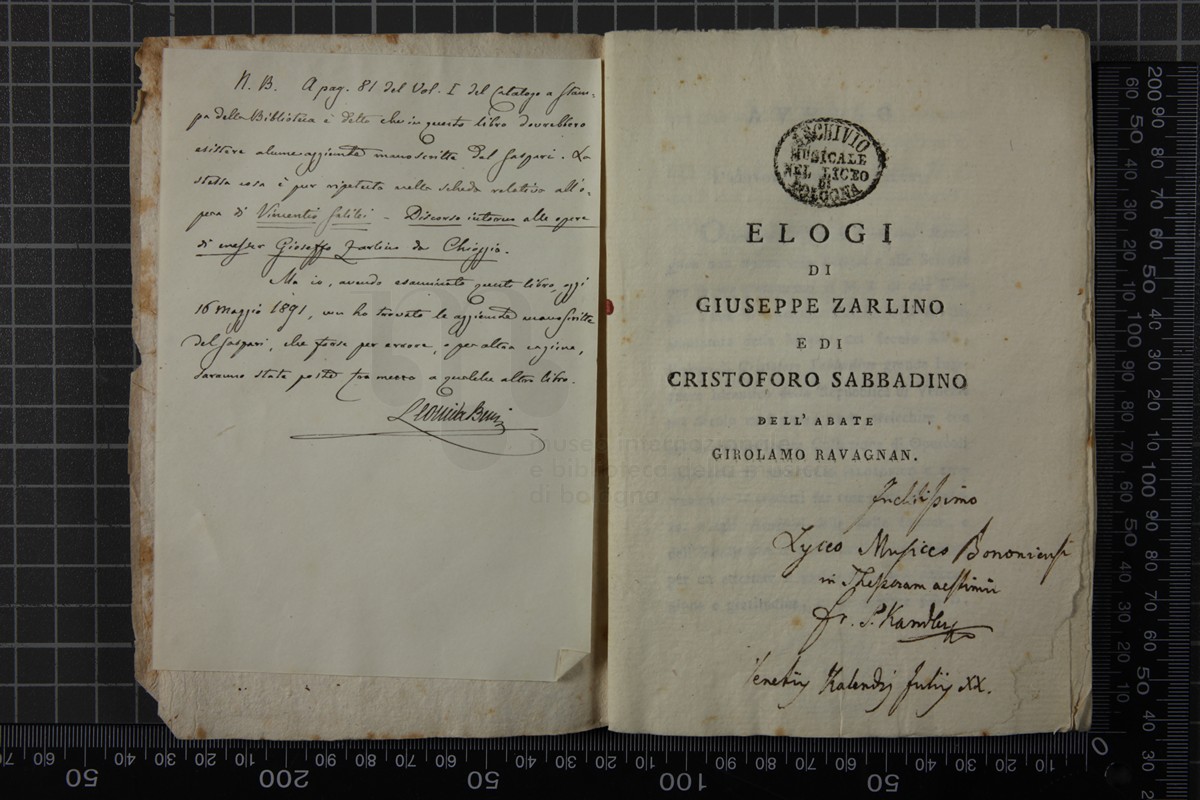 N. B. A pag. 81 del Vol. I del Catalogo a stam-
pa della Biblioteca è detto che in questo libro dovrebbero
esistere alcune aggiunte manoscritte dal Gaspari. La
stessa cosa è pur ripetuta nella scheda relativa all'o-
pera di Vincentio Galilei - Discorso intorno alle opere
di messer Gioseffo Zarlino da Chioggia.
Ma io, avendo esaminato questo libro, oggi
16 Maggio 1891, non ho trovato le aggiunte manoscritte
del Gaspari, che forse per errore, o per altra cagione,
saranno state poste fra mezzo a qualche altro libro.
Leonida Busi
museo internazionale
e biblioteca della musica
di bologna
ARCHIVIO
MUSICALE
NEL LICEO
DI
BOLOGNA
ELOGI
DI
GIUSEPPE ZARLINO
E DI
CRISTOFORO SABBADINO
DELL'ABATE
GIROLAMO RAVAGNAN.
Inclitissimo
Lyceo Musico Bononiensi
in Thesseram aestimii
Fr. S. Kandler
Venetiis Kalendis Julii XX.